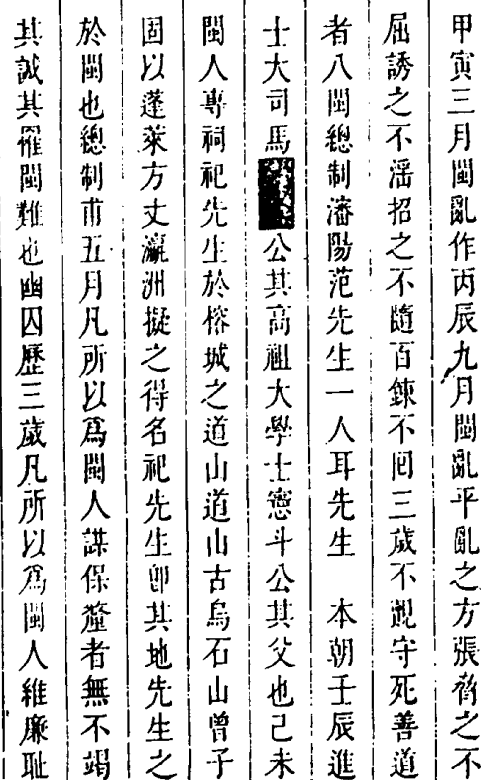 甲寅三月閩亂作丙辰九月閩亂平亂之方張脅之不
屈誘之不滛招之不隨百鍊不囘三歲不覿守死善道
者八閩總制瀋陽范先生一人耳先生 本朝壬辰進
士大司馬公其高祖大學士憲斗公其父也己未
閩人專祠祀先生於榕城之道山道山古烏石山曾子
固以蓬萊方丈瀛洲擬之得名祀先生卽其地先生之
於閩也總制甫五月凡所以爲閩人謀保釐者無不竭
其誠其罹閩難也幽囚歷三歲凡所以爲閩人維廉耻